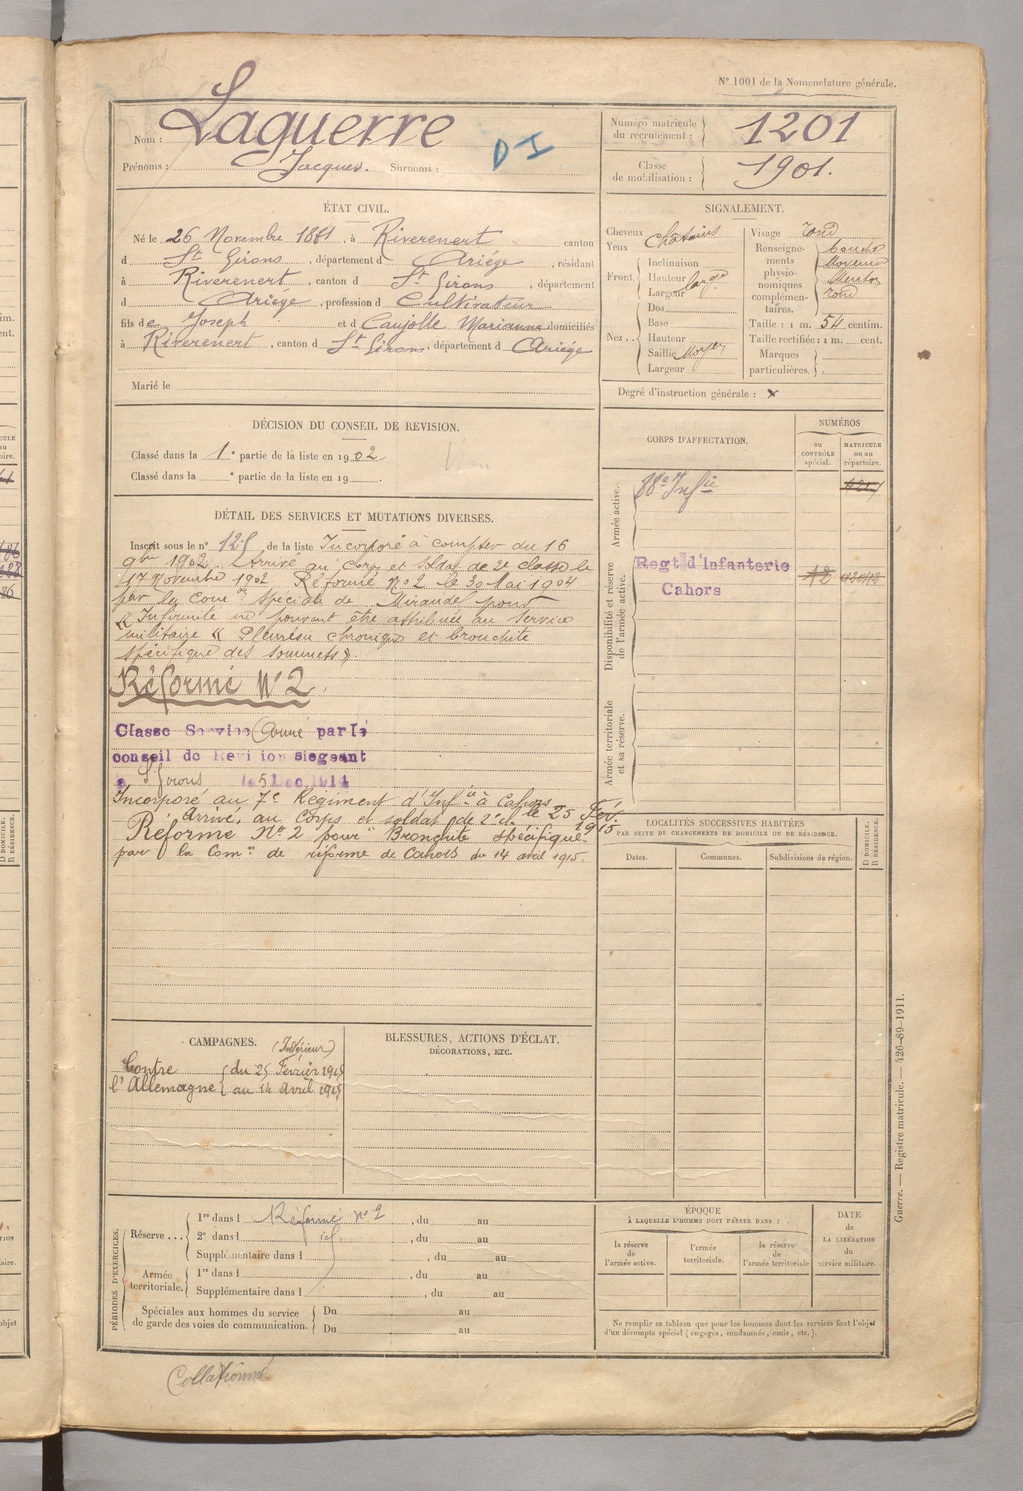 N° 1001 de la Nomenclature générale.
Nom : Laguerre
Prénoms : Jacques. Surnoms :
D I
Numéro matricule du recrutement : 1201
Classe de mobilisation : 1901.
ÉTAT CIVIL.
Né le 26 Novembre 1881, à Riverenert canton
d St Girons, département d Ariège, résidant
à Riverenert, canton d St Girons, département
d Ariège, profession d Cultivateur
fils de Joseph et d Caujolle Marianne domiciliés
à Riverenert, canton d St Girons, département d Ariège
Marié le
SIGNALEMENT.
Cheveux châtains
Yeux
Front Inclinaison
Hauteur large
Largeur
Nez Dos
Base
Hauteur
Saillie Moyen
Largeur
Visage rond
Renseignements physionomiques complémentaires. bouche
Moyenne
Menton
rond
Taille : 1 m. 54 centim.
Taille rectifiée : 1 m. cent.
Marques particulières.
Degré d'instruction générale : x
DÉCISION DU CONSEIL DE REVISION.
Classé dans la 1e partie de la liste en 1902.
Classé dans la e partie de la liste en 19
DÉTAIL DES SERVICES ET MUTATIONS DIVERSES.
Inscrit sous le n° 125 de la liste Incorporé à compter du 16
9bre 1902. Arrivé au Corps et soldat de 2e classe le
17 novembre 1902. Réformé no 2 le 30 Mai 1904
par la Comon Spéciale de Mirande pour
« Infirmité ne pouvant être attribuée au service
militaire « Pleurésie chronique et bronchite
spécifique des sommets ».
Réformé N° 2.
Classe Service Armé par le
conseil de Revision siegeant
a St Girons le 5 Dec. 1914
Incorporé au 7e Régiment d'Infie à Cahors
Arrivé au Corps et soldat de 2e cl. le 25 Fév.
1915
Réformé No 2 pour "Bronchite spécifique"
par la Comon de réforme de Cahors du 14 avril 1915.
CORPS D'AFFECTATION.
NUMÉROS
au CONTRÔLE spécial.
MATRICULE ou au répertoire.
Armée active.
88e Infie
Disponibilité et réserve de l'armée active.
Regt d'Infanterie
Cahors
Armée territoriale et sa réserve.
LOCALITÉS SUCCESSIVES HABITÉES
PAR SUITE DE CHANGEMENTS DE DOMICILE OU DE RÉSIDENCE.
Dates.
Communes.
Subdivisions de région.
D DOMICILE.
R RÉSIDENCE.
CAMPAGNES.
(Intérieur)
Contre l'Allemagne
du 25 Février 1915
au 14 Avril 1915
BLESSURES, ACTIONS D'ÉCLAT,
DÉCORATIONS, ETC.
PÉRIODES D'EXERCICES.
Réserve...
1re dans l Réformé n° 2, du au
2e dans l id, du au
Supplémentaire dans l , du au
Armée territoriale.
1re dans l , du au
Supplémentaire dans l , du au
Spéciales aux hommes du service
de garde des voies de communication.
Du au
Du au
ÉPOQUE
À LAQUELLE L'HOMME DOIT PASSER DANS :
la réserve de l'armée active.
l'armée territoriale.
la réserve de l'armée territoriale
DATE de LA LIBÉRATION du service militaire.
Ne remplir ce tableau que pour les hommes dont les services font l'objet
d'un décompte spécial (engagés, condamnés, omis, etc.).
Guerre. — Registre matricule. — 426-89-1911.
Collationné